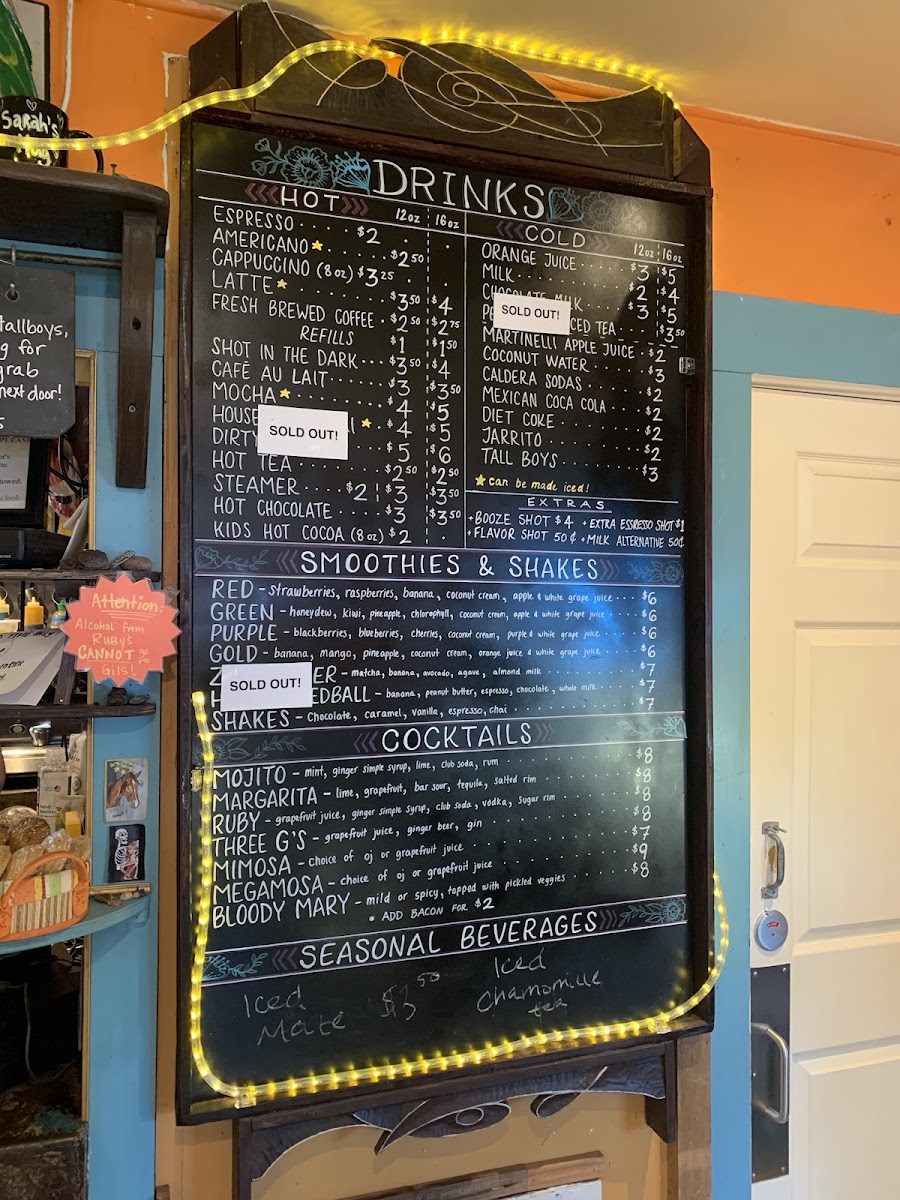 Sarah's
Mug
tallboys,
g for
grab
next door!
s
PLEASE
Attention:
Alcohol from
RUBY'S
CANNOT go to
Gils!
DRINKS
HOT
12oz 16oz
ESPRESSO $2
AMERICANO $2.50
CAPPUCCINO (8oz) $3.25
LATTE $3.50 $4
FRESH BREWED COFFEE $2.50 $2.75
REFILLS $1 $1.50
SHOT IN THE DARK $3.50 $4
CAFÉ AU LAIT $3 $3.50
MOCHA $4 $5
HOUSE SOLD OUT! $4 $5
DIRTY $5 $6
HOT TEA $2.50 $2.50
STEAMER $2 $3 $3.50
HOT CHOCOLATE $3 $3.50
KIDS HOT COCOA (8oz) $2
COLD
12oz 16oz
ORANGE JUICE $3 $5
MILK $2 $4
CHOCOLATE MILK $3 $5
SOLD OUT! ICED TEA $3.50
MARTINELLI APPLE JUICE $2
COCONUT WATER $3
CALDERA SODAS $2
MEXICAN COCA COLA $2
DIET COKE $2
JARRITO $2
TALL BOYS $3
can be made iced!
EXTRAS
BOOZE SHOT $4 EXTRA ESPRESSO SHOT $1
FLAVOR SHOT 50¢ MILK ALTERNATIVE 50¢
SMOOTHIES & SHAKES
RED - strawberries, raspberries, banana, coconut cream, apple & white grape juice $6
GREEN - honeydew, kiwi, pineapple, chlorophyll, coconut cream, apple & white grape juice $6
PURPLE - blackberries, blueberries, cherries, coconut cream, purple & white grape juice $6
GOLD - banana, mango, pineapple, coconut cream, orange juice & white grape juice $6
SOLD OUT! ER - matcha, banana, avocado, agave, almond milk $7
EDBALL - banana, peanut butter, espresso, chocolate, whole milk $7
SHAKES - Chocolate, caramel, vanilla, espresso, chai $7
COCKTAILS
MOJITO - mint, ginger simple syrup, lime, club soda, rum $8
MARGARITA - lime, grapefruit, bar sour, tequila, salted rim $8
RUBY - grapefruit juice, ginger simple syrup, club soda, vodka, sugar rim $8
THREE G'S - grapefruit juice, ginger beer, gin $8
MIMOSA - choice of oj or grapefruit juice $7
MEGAMOSA - choice of oj or grapefruit juice $9
BLOODY MARY - mild or spicy, topped with pickled veggies $8
* ADD BACON FOR $2
SEASONAL BEVERAGES
Iced
Mate $3.50
Iced
Chamomille
tea